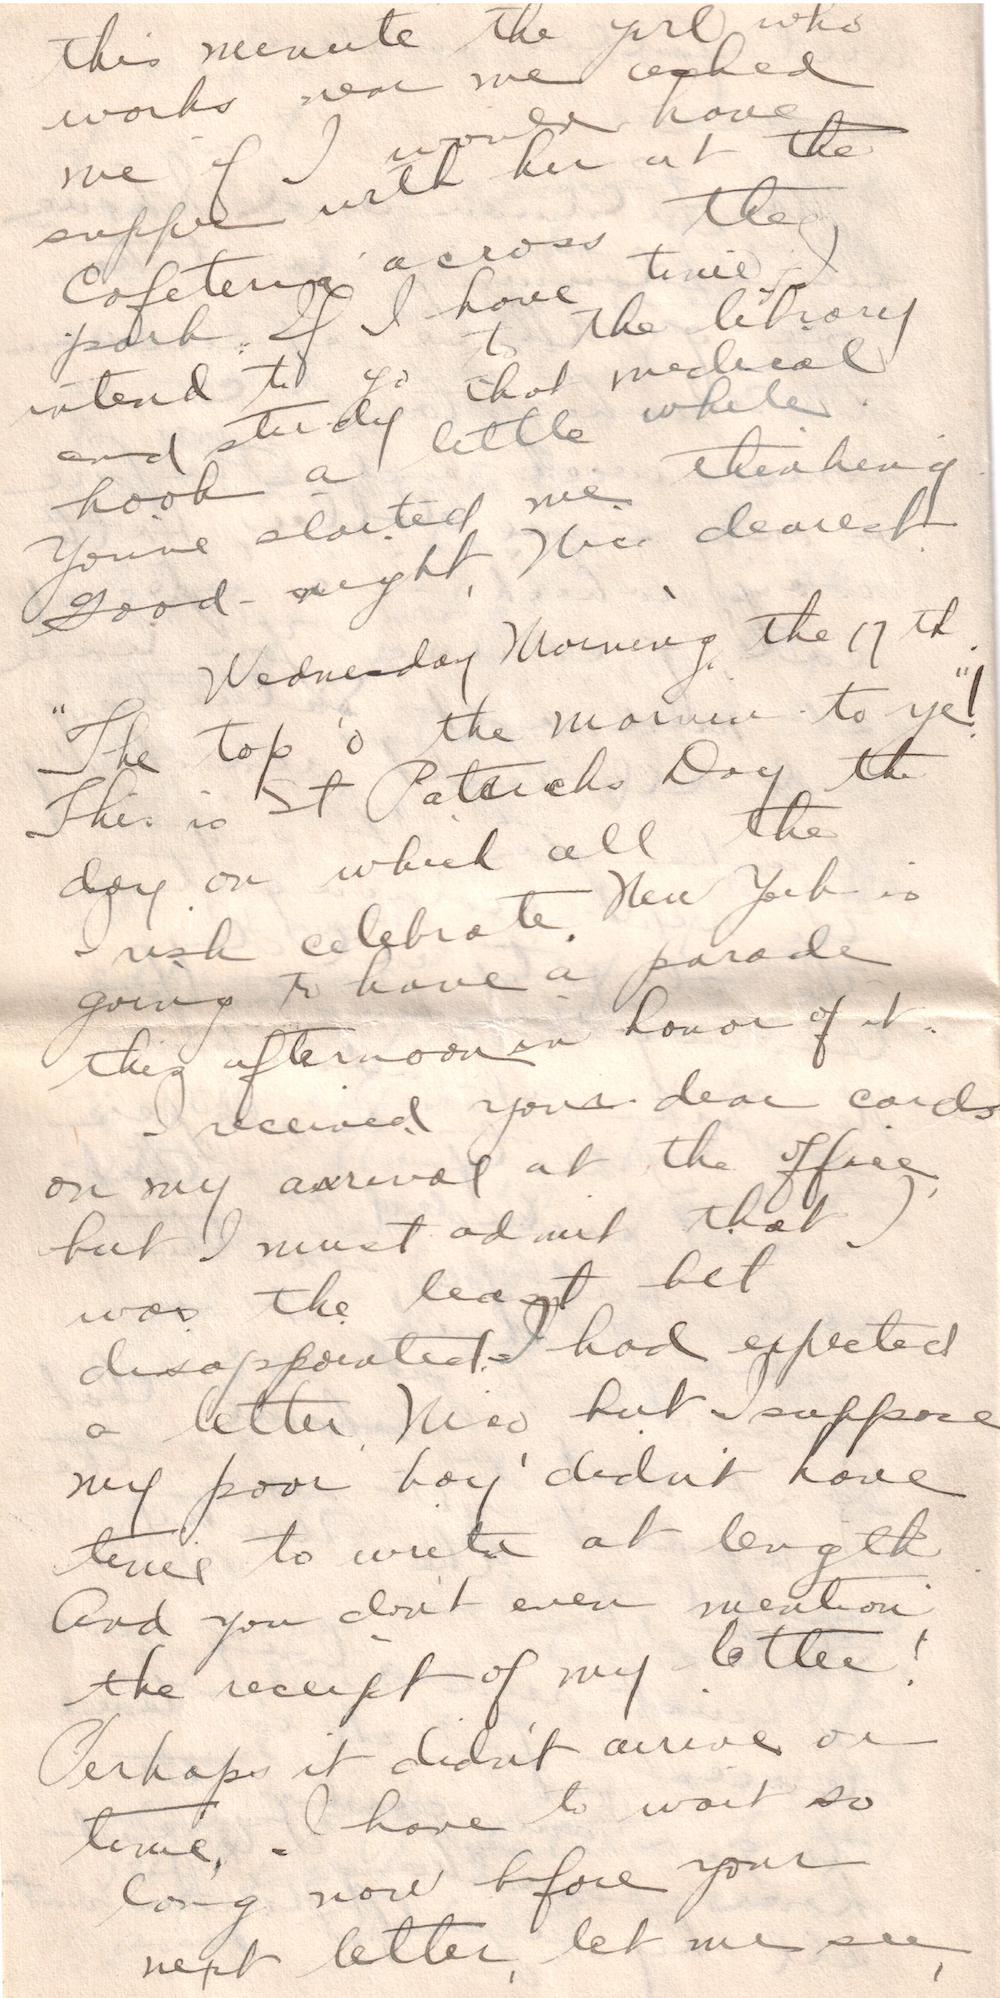 this minute the girl who
works near me asked
me if I would have
supper with her at the
Cafeteria across the
park. If I have time, I
intend to go to the library
and study that medical
book a little while.
You've started me thinking
Good-night, Nico dearest
Wednesday Morning, the 17th.
"The top 'o the mornin to ye"!
This is St Patricks Day the
day on which all the
Irish celebrate. New York is
going to have a parade
this afternoon in honor of it.
I received your dear cards
on my arrival at the office,
but I must admit that I
was the least bit
disappointed. I had expected
a letter, Nico but I suppose
my poor boy didn't have
time to write at length
And you don't even mention
the receipt of my letter!
Perhaps it didn't arrive on
time. - I have to wait so
long now before your
next letter, let me see,